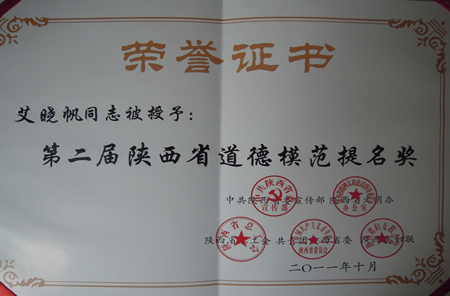 荣誉证书
艾晓帆同志被授予：
第二届陕西省道德模范提名奖
中共陕西省委宣传部 陕西省文明办
陕西省总工会 共青团陕西省委 陕西省妇联
二〇一一年十月